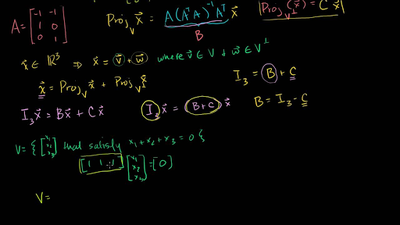 A = [-1 -1
1 0
0 1]
Proj_V x⃗ = A(AᵀA)⁻¹Aᵀ x⃗
B
Proj_V⊥(x⃗) = C x⃗
x⃗ ∈ ℝ³ ⇒ x⃗ = v⃗ + w⃗ where v⃗ ∈ V & w⃗ ∈ V⊥
x⃗ = Proj_V x⃗ + Proj_V⊥ x⃗
I₃ = B + C
I₃x⃗ = Bx⃗ + Cx⃗
I₃x⃗ = (B+C) x⃗
B = I₃ - C
V = { [x₁ x₂ x₃] that satisfy x₁ + x₂ + x₃ = 0 }
[1 1 1] [x₁ x₂ x₃] = [0]
V =